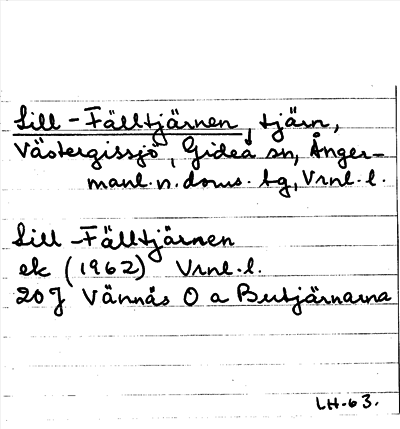 Lill-Fälltjärnen, tjärn,
Västergissjö, Gideå sn, Ånger-
manl. n. doms. tg, Vrnl. l.
Lill-Fälltjärnen
ek (1962) Vrnl. l.
20 J Vännäs O a Butjärnarna
LH-63.